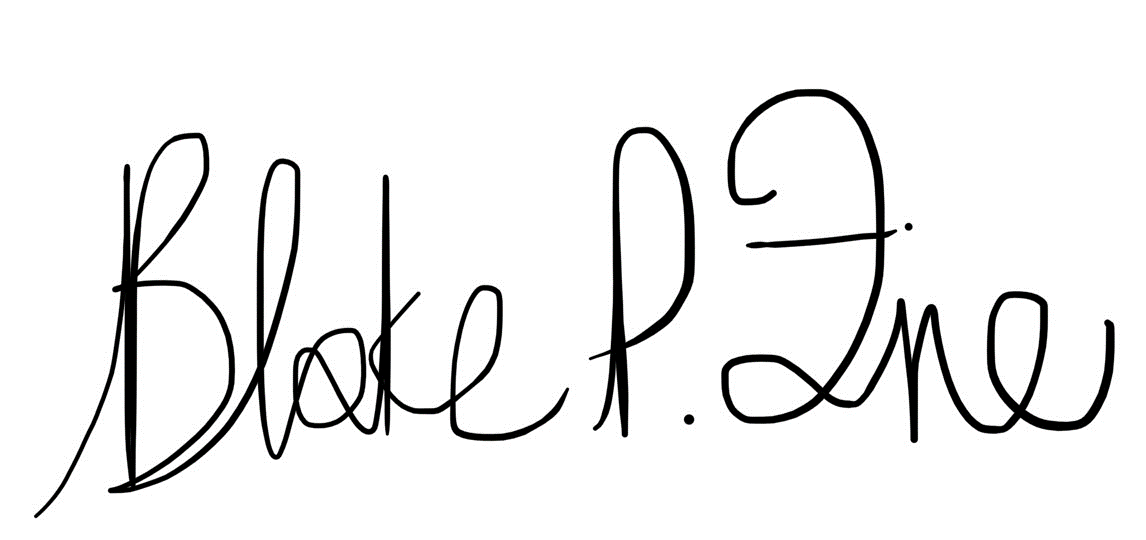 Blake P. Fine